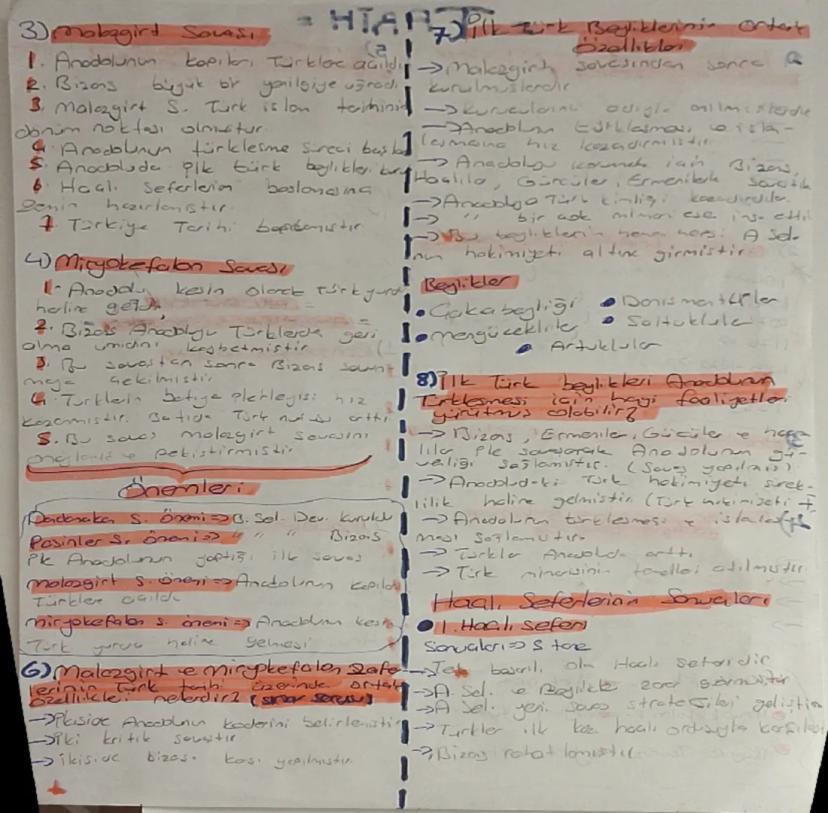 3) Malazgirt Savaşı
1. Anadolunun kapıları Türklere açıldı
2. Bizans büyük bir yenilgiye uğradı
3. Malazgirt S. Türk islam tarihinin
dönüm noktası olmuştur
4. Anadolunun türkleşme süreci başla
5. Anadoluda ilk türk beylikleri kuru
6. Haçlı Seferlerin başlamasına
zemin hazırlamıştır
7. Türkiye Tarihi başlamıştır
4) Miryokefalon Savaşı
1- Anadolu kesin olarak Türk yurdu
haline geldi
2. Bizans Anadoluyu Türklerde geri
alma umidini kaybetmiştir
3. Bu savaştan sonra Bizans savun
maya çekilmiştir
4. Türklerin batıya ilerleyişi hız
kazanmıştır. Batıda Türk nüfusu arttı
5. Bu savaş malazgirt savaşını
pekiştirmiştir
Önemleri
Dandanaka S. önemi => B. Sel. Dev. kuruldu
Pasinler S. önemi => " " " Bizans
ilk Anadolunun yaptığı ilk savaş
Malazgirt S. önemi => Anadolunun kapıları
Türklere açıldı
Miryokefalon S. önemi => Anadolunun kesin
Türk yurdu haline gelmesi
6) Malazgirt ve miryokefalon zafe
lerinin Türk tarihi üzerinde ortak
özellikleri nelerdir? (sınav sorusu)
-> ikiside Anadolunun kaderini belirlemiştir
-> iki kritik savaştır
-> ikiside bizans. karşı yapılmıştır
7) İlk Türk Beyliklerinin Ortak
Özellikleri
-> Malazgirt savaşından sonra
kurulmuşlardır
-> kurucularının adıyla anılmışlardır
-> Anadolunun türkleşmesi ve isla-
laşmasına hız kazandırmıştır
-> Anadoluyu korumak için Bizans,
Haçlıla, Gürcüler, Ermenilerle savaştık
-> Anadoluya Türk kimliği kazandırdılar
-> " bir çok mimari ese inşa etti
-> Bu beyliklerin hemen hepsi A Sel-
nun hakimiyeti altına girmiştir
Beylikler
• Çaka beyliği • Danişmentliler
• mengücekliler • Saltuklular
• Artuklular
8) İlk Türk beylikleri Anadolunun
Türkleşmesi için hangi faaliyetleri
yürütmüş olabilir?
-> Bizans, Ermeniler, Gürcüler ve haç
lıla ile savaşarak Anadolunun gü-
venliği sağlamıştır. (Savaş yapılmış)
-> Anadoludaki Türk hakimiyeti sürek-
lilik haline gelmiştir (Türk hakimiyeti +
-> Anadolunun türkleşmesi ve islamlaş
ması sağlamıştır
-> Türkler Anadoluda arttı
-> Türk mimarisinin temelleri atılmıştır
Haçlı Seferlerinin Sonuçları
• 1. Haçlı seferi
Sonuçları => 5 tane
-> Tek başarılı olan Haçlı seferidir
-> A Sel. ve Beylikler zarar görmüştür
-> A Sel. yeni savaş stratejileri geliştir
-> Türkler ilk kez haçlı ordusuyla karşılaş
-> Bizans rahatlamıştır